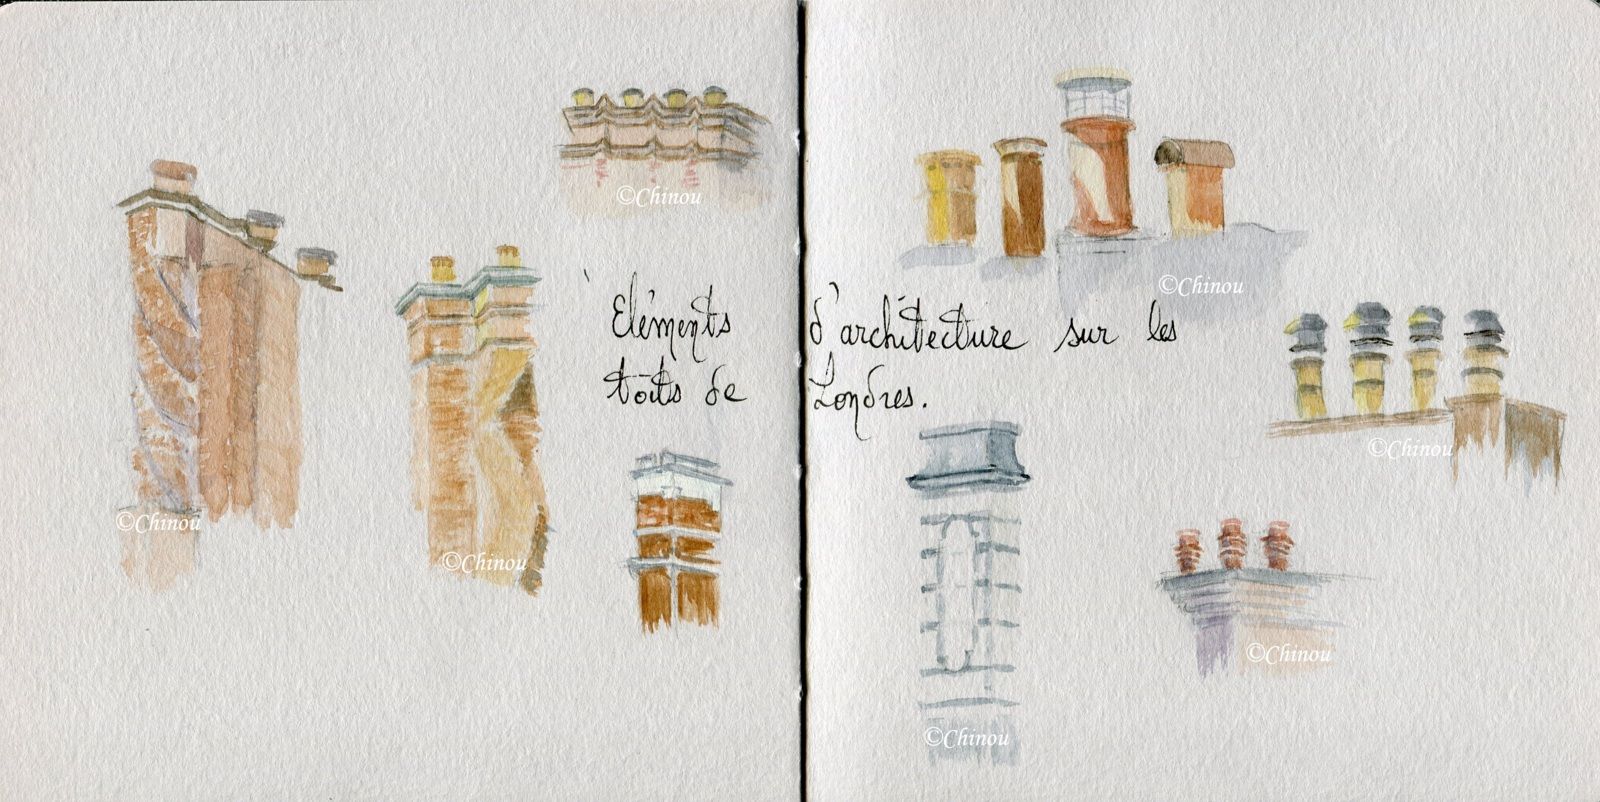 ©Chinou
©Chinou
Eléments d'architecture sur les
toits de Londres.
©Chinou
©Chinou
©Chinou
©Chinou
©Chinou
©Chinou